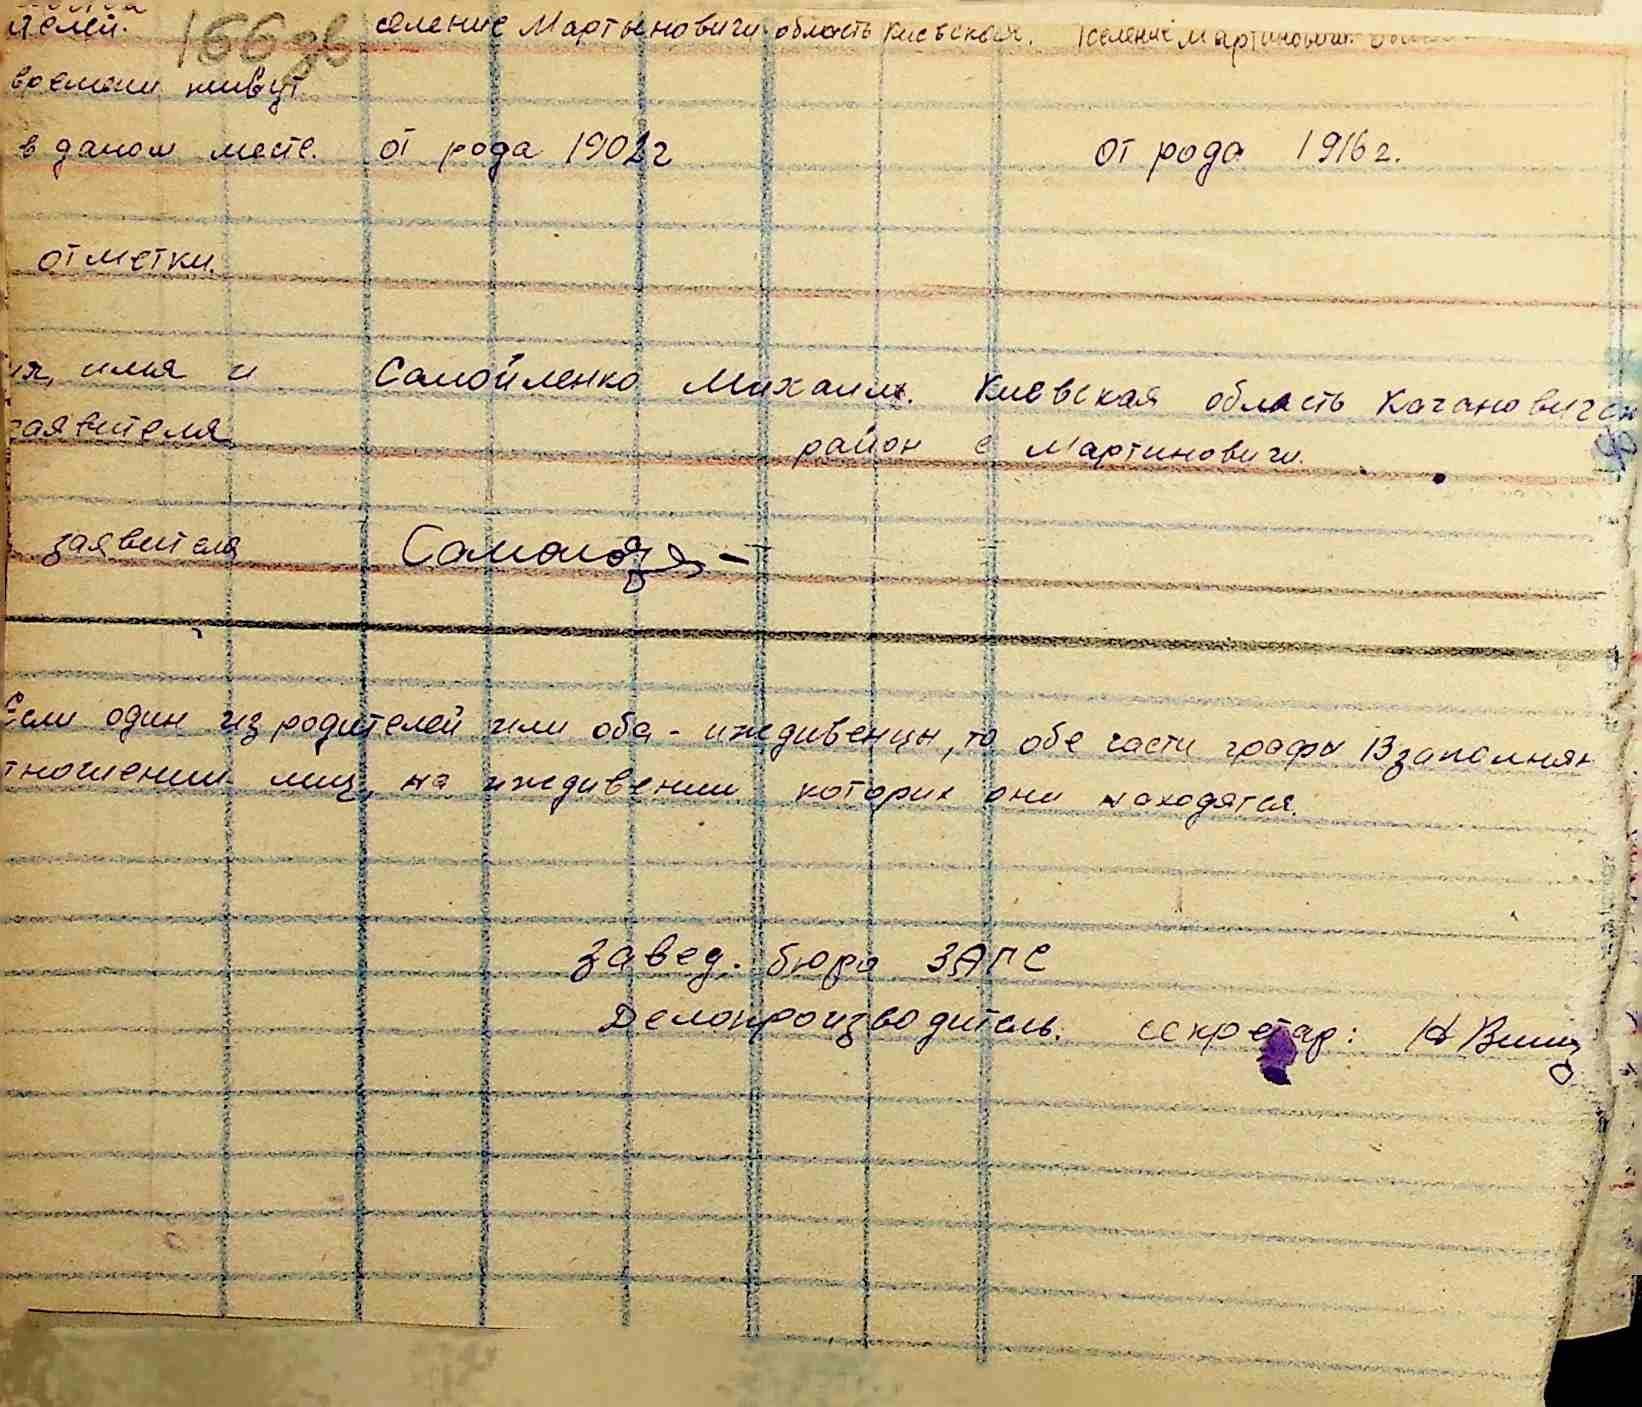 телей. 166 зв селение Мартыновичи область Киевская. селение Мартиновичи
времени живут
в даном месте. от рода 1902г от рода 1916г.
отметки.
имя и Самойленко Михаил. Киевская область Каганович
заявителя район с Мартиновичи.
заявителя
Если один из родителей или оба - иждивенцы, то обе части графы 13 заполнян
тношении лиц, на иждивении которих они находятся.
Завед. бюро ЗАГС
Делопроизводитель. секретар: